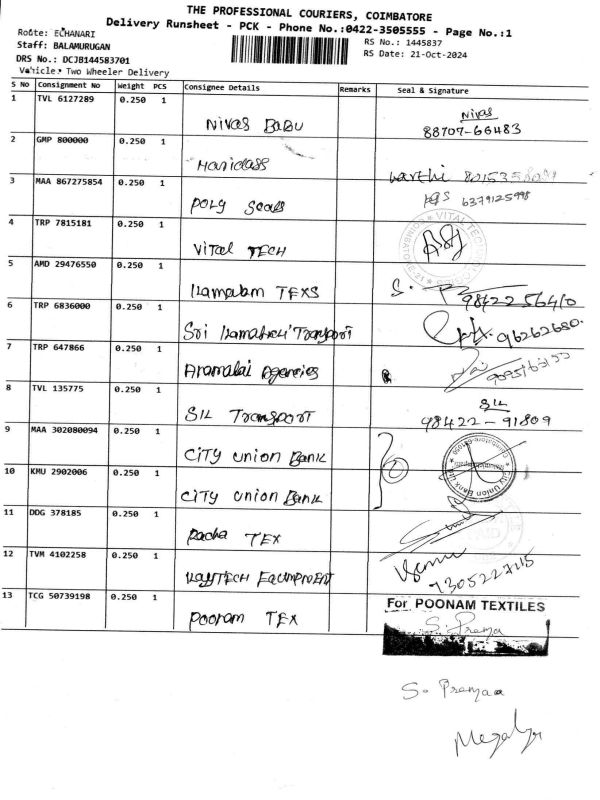 THE PROFESSIONAL COURIERS, COIMBATORE
Delivery Runsheet - PCK - Phone No.:0422-3505555 - Page No.:1
Route: ECHANARI
Staff: BALAMURUGAN
RS No.: 1445837
DRS No.: DCJB144583701
RS Date: 21-Oct-2024
Vehicle: Two Wheeler Delivery
S No Consignment No Weight PCS Consignee Details Remarks Seal & Signature
1 TVL 6127289 0.250 1 Nivas Babu Nivas 88707-66483
2 GMP 800000 0.250 1
3 MAA 867275854 0.250 1 Poly Seals 6379125998
4 TRP 7815181 0.250 1 Vital TECH
5 AMD 29476550 0.250 1 TEXS 9842256410
6 TRP 6836000 0.250 1 Sri Transport
7 TRP 647866 0.250 1 Agencies
8 TVL 135775 0.250 1 SIL Transport SIL 98422-91809
9 MAA 302080094 0.250 1 City Union Bank
10 KMU 2902006 0.250 1 City Union Bank
11 DDG 378185 0.250 1 Pacha TEX
12 TVM 4102258 0.250 1
13 TCG 50739198 0.250 1 Poonam TEX
For POONAM TEXTILES
S. Prema
S. Premaa